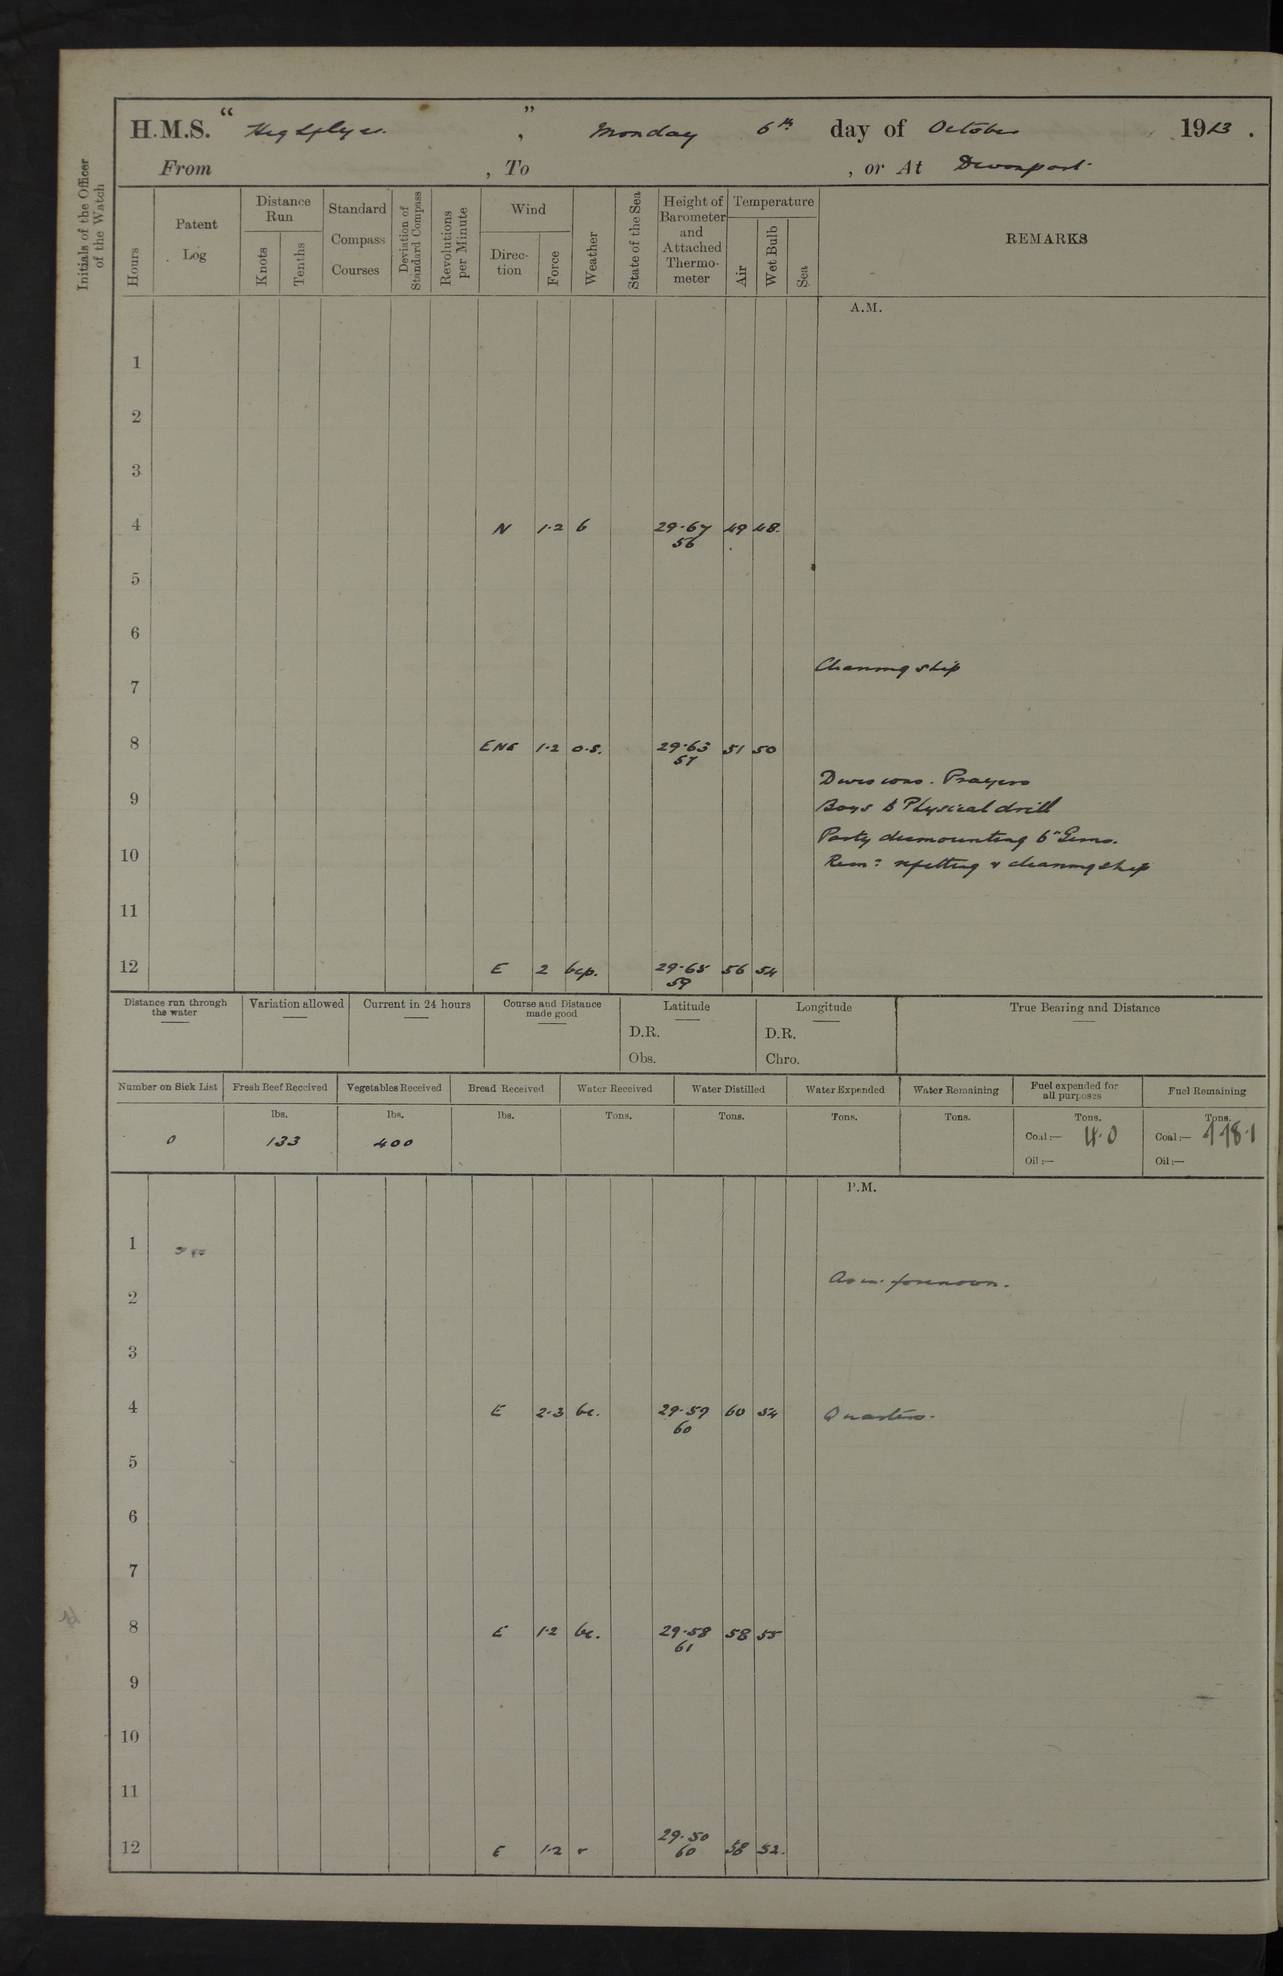 H.M.S. "Highflyer.", Monday 6th day of October 1913.
From , To , or At Devonport
Initials of the Officer of the Watch
Hours
Patent Log
Distance Run
Knots
Tenths
Standard Compass Courses
Deviation of Standard Compass
Revolutions per Minute
Wind
Direction
Force
Weather
State of the Sea
Height of Barometer and Attached Thermometer
Temperature
Air
Wet Bulb
Sea
REMARKS
A.M.
1
2
3
4 N 1-2 b 29.67 49 48.
56
5
6
Cleaning ship
7
8 ENE 1-2 o.s. 29.63 51 50
57
Divisions. Prayers
9
Boys to Physical drill
Party dismounting 6" Guns.
10
Remr: refitting & cleaning ship
11
12 E 2 bcp. 29.65 56 54
59
Distance run through the water
Variation allowed
Current in 24 hours
Course and Distance made good
Latitude
D.R.
Obs.
Longitude
D.R.
Chro.
True Bearing and Distance
Number on Sick List
Fresh Beef Received
Vegetables Received
Bread Received
Water Received
Water Distilled
Water Expended
Water Remaining
Fuel expended for all purposes
Fuel Remaining
lbs. lbs. lbs. Tons. Tons. Tons. Tons. Tons. Tons.
0 133 400 Coal:— 4.0 Coal:—
Oil:— Oil:—
P.M.
1
As in forenoon.
2
3
4 E 2-3 bc. 29.59 60 54 Quarters.
60
5
6
7
8 E 1-2 bc. 29.58 58 55
61
9
10
11
12 E 1-2 r 29.50 58 52.
60